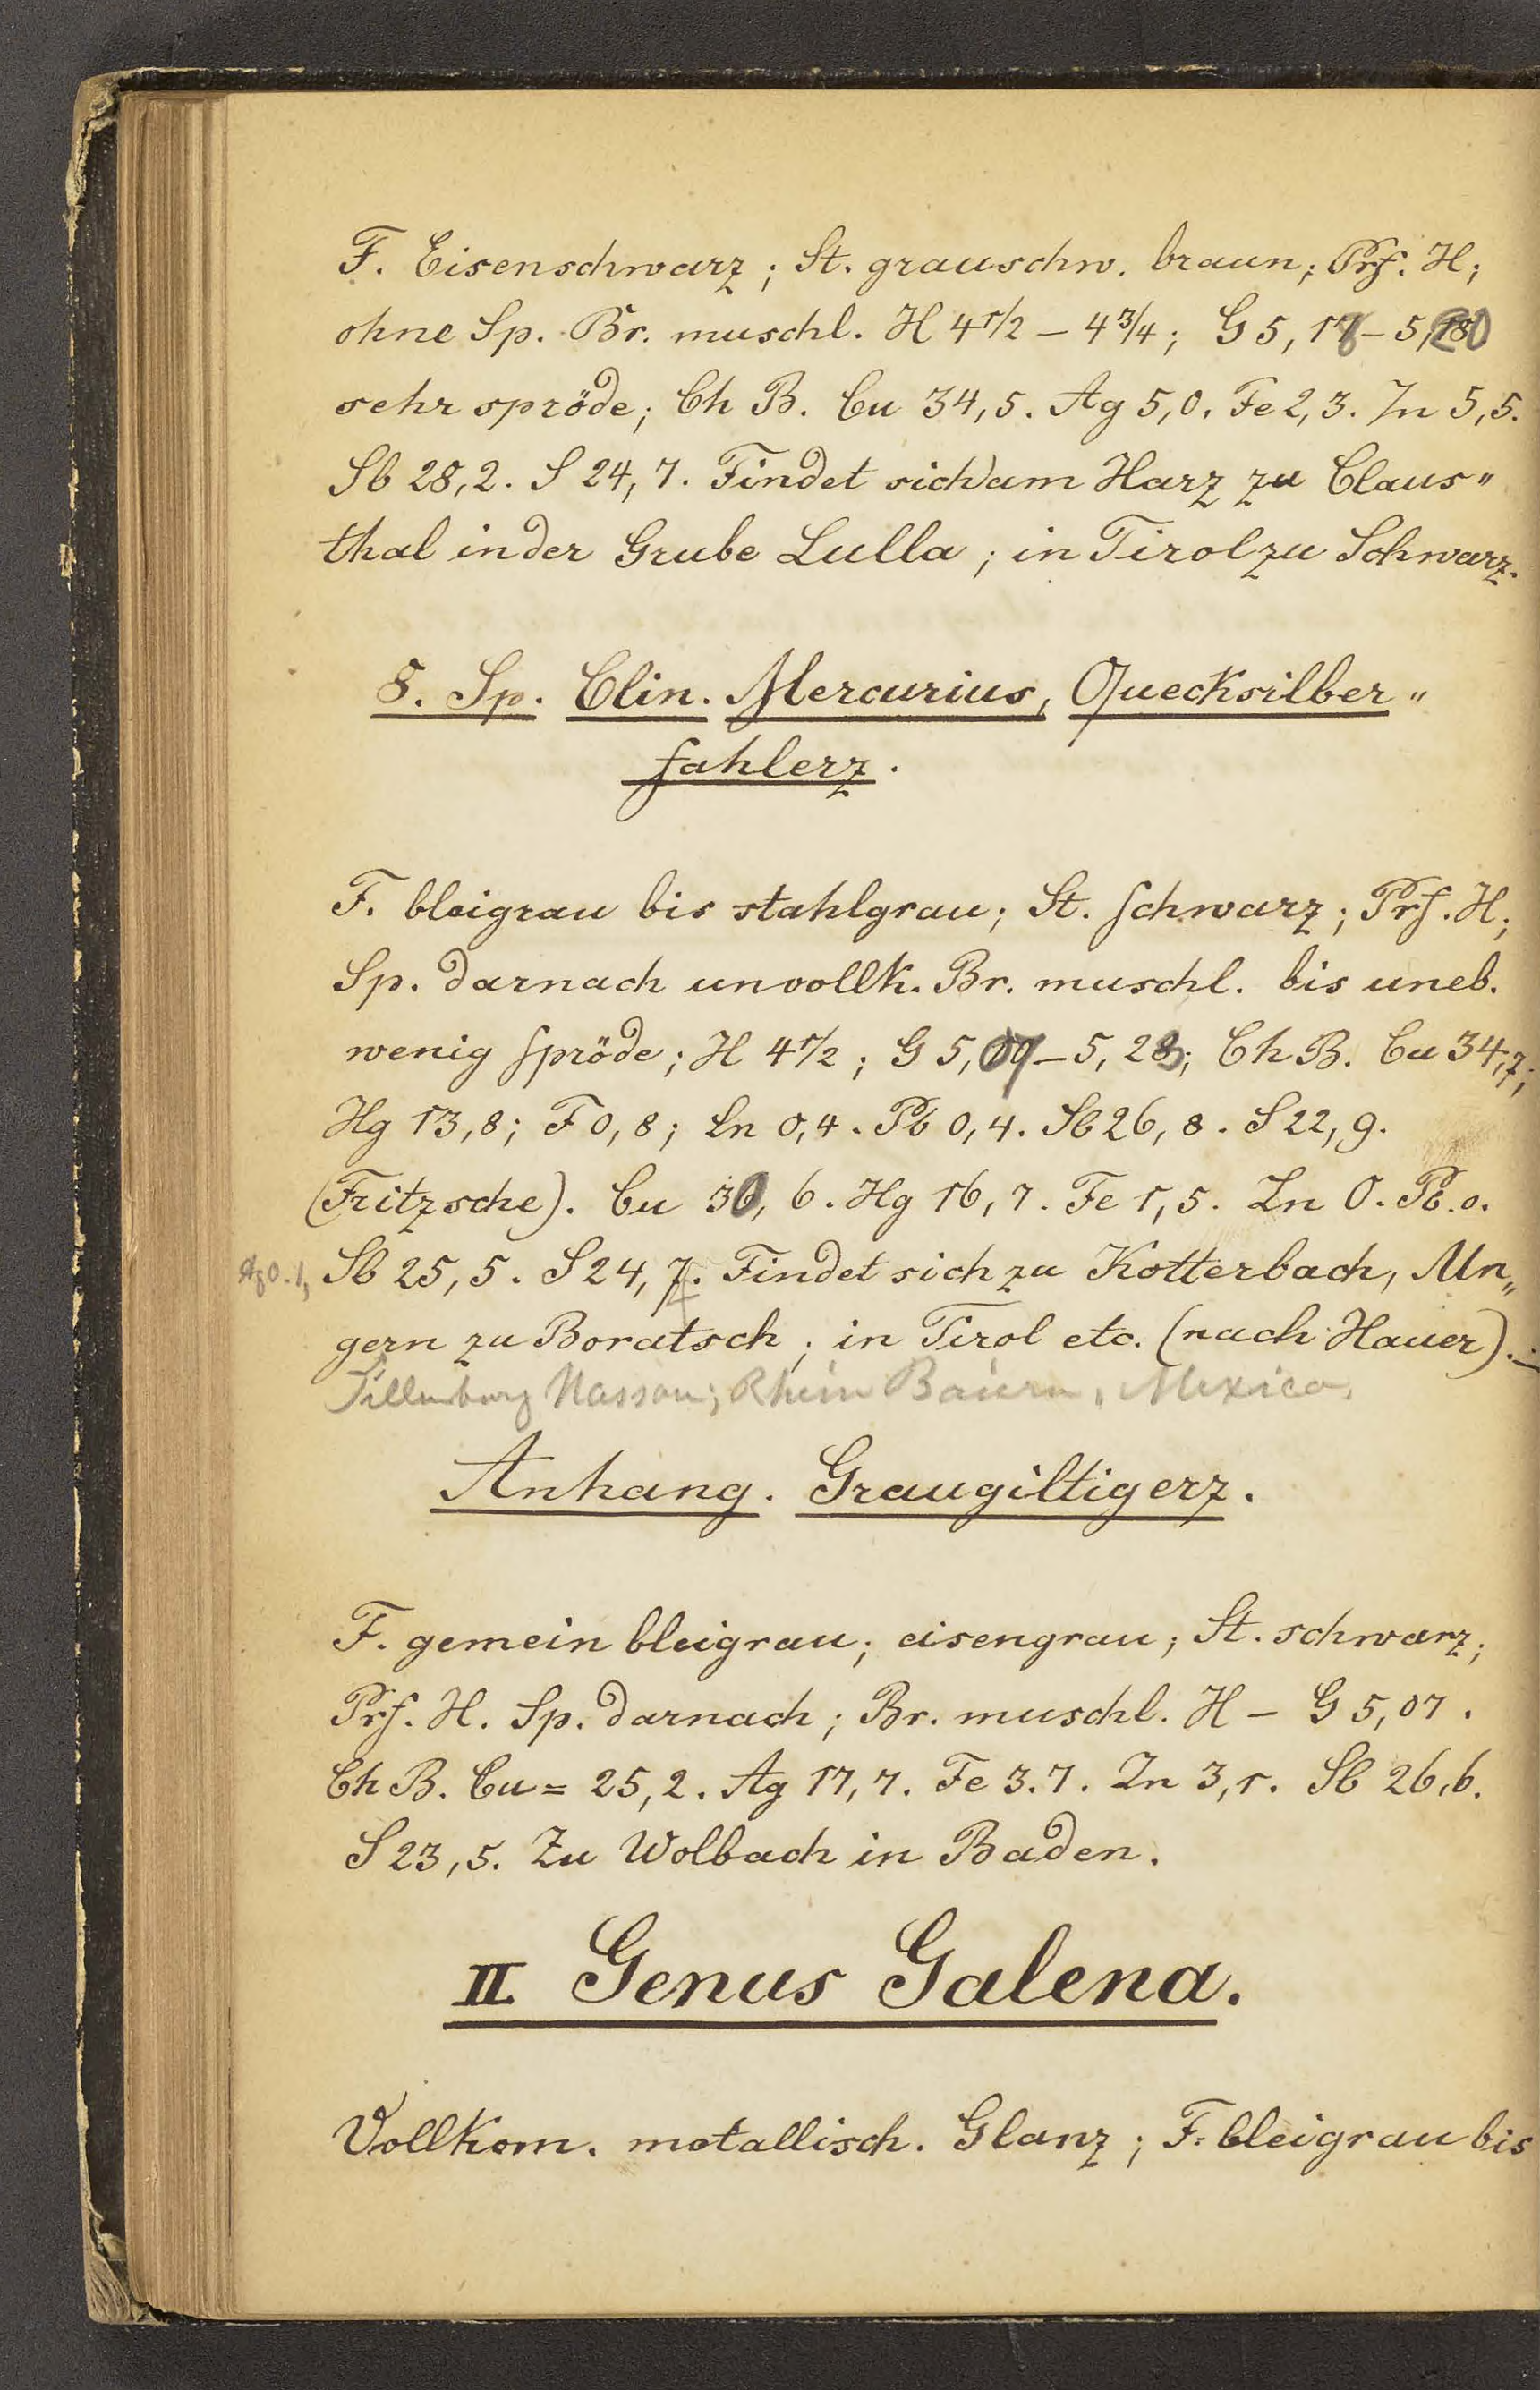 F. Eisenschwarz; St. grauschw. braun; Prf. H;
ohne Sp. Br. muschl. H 4 1/2 – 4 3/4; G 5,18 – 5,20
sehr spröde; Ch B. Cu 34,5. Ag 5,0. Fe 2,3. Zn 5,5.
Sb 28,2. S 24,7. Findet sich am Harz zu Claus„
thal in der Grube Lulla; in Tirol zu Schwarz.
8. Sp. Clin. Mercurius, Quecksilber„
fahlerz.
F. bleigrau bis stahlgrau; St. schwarz; Prf. H;
Sp. darnach unvollk. Br. muschl. bis uneb.
wenig spröde; H 4 1/2; G 5, – 5,28; Ch B. Cu 34,7;
Hg 13,8; F 0,8; Zn 0,4. Pb 0,4. Sb 26,8. S 22,9.
(Fritzsche). Cu 30,6. Hg 16,7. Fe 1,5. Zn 0. Pb. 0.
Ag 0.1, Sb 25,5. S 24,7. Findet sich zu Kotterbach, Un„
gern zu Boratsch; in Tirol etc. (nach Hauer).
Dillenburg Nassau; Rhein Baiern, Mexico.
Anhang. Graugiltigerz.
F. gemein bleigrau; eisengrau; St. schwarz;
Prf. H. Sp. darnach; Br. muschl. H – G 5,07.
Ch B. Cu = 25,2. Ag 17,7. Fe 3.7. Zn 3,1. Sb 26,6.
S 23,5. Zu Wolbach in Baden.
II Genus Galena.
Vollkom. metallisch. Glanz; F. bleigrau bis